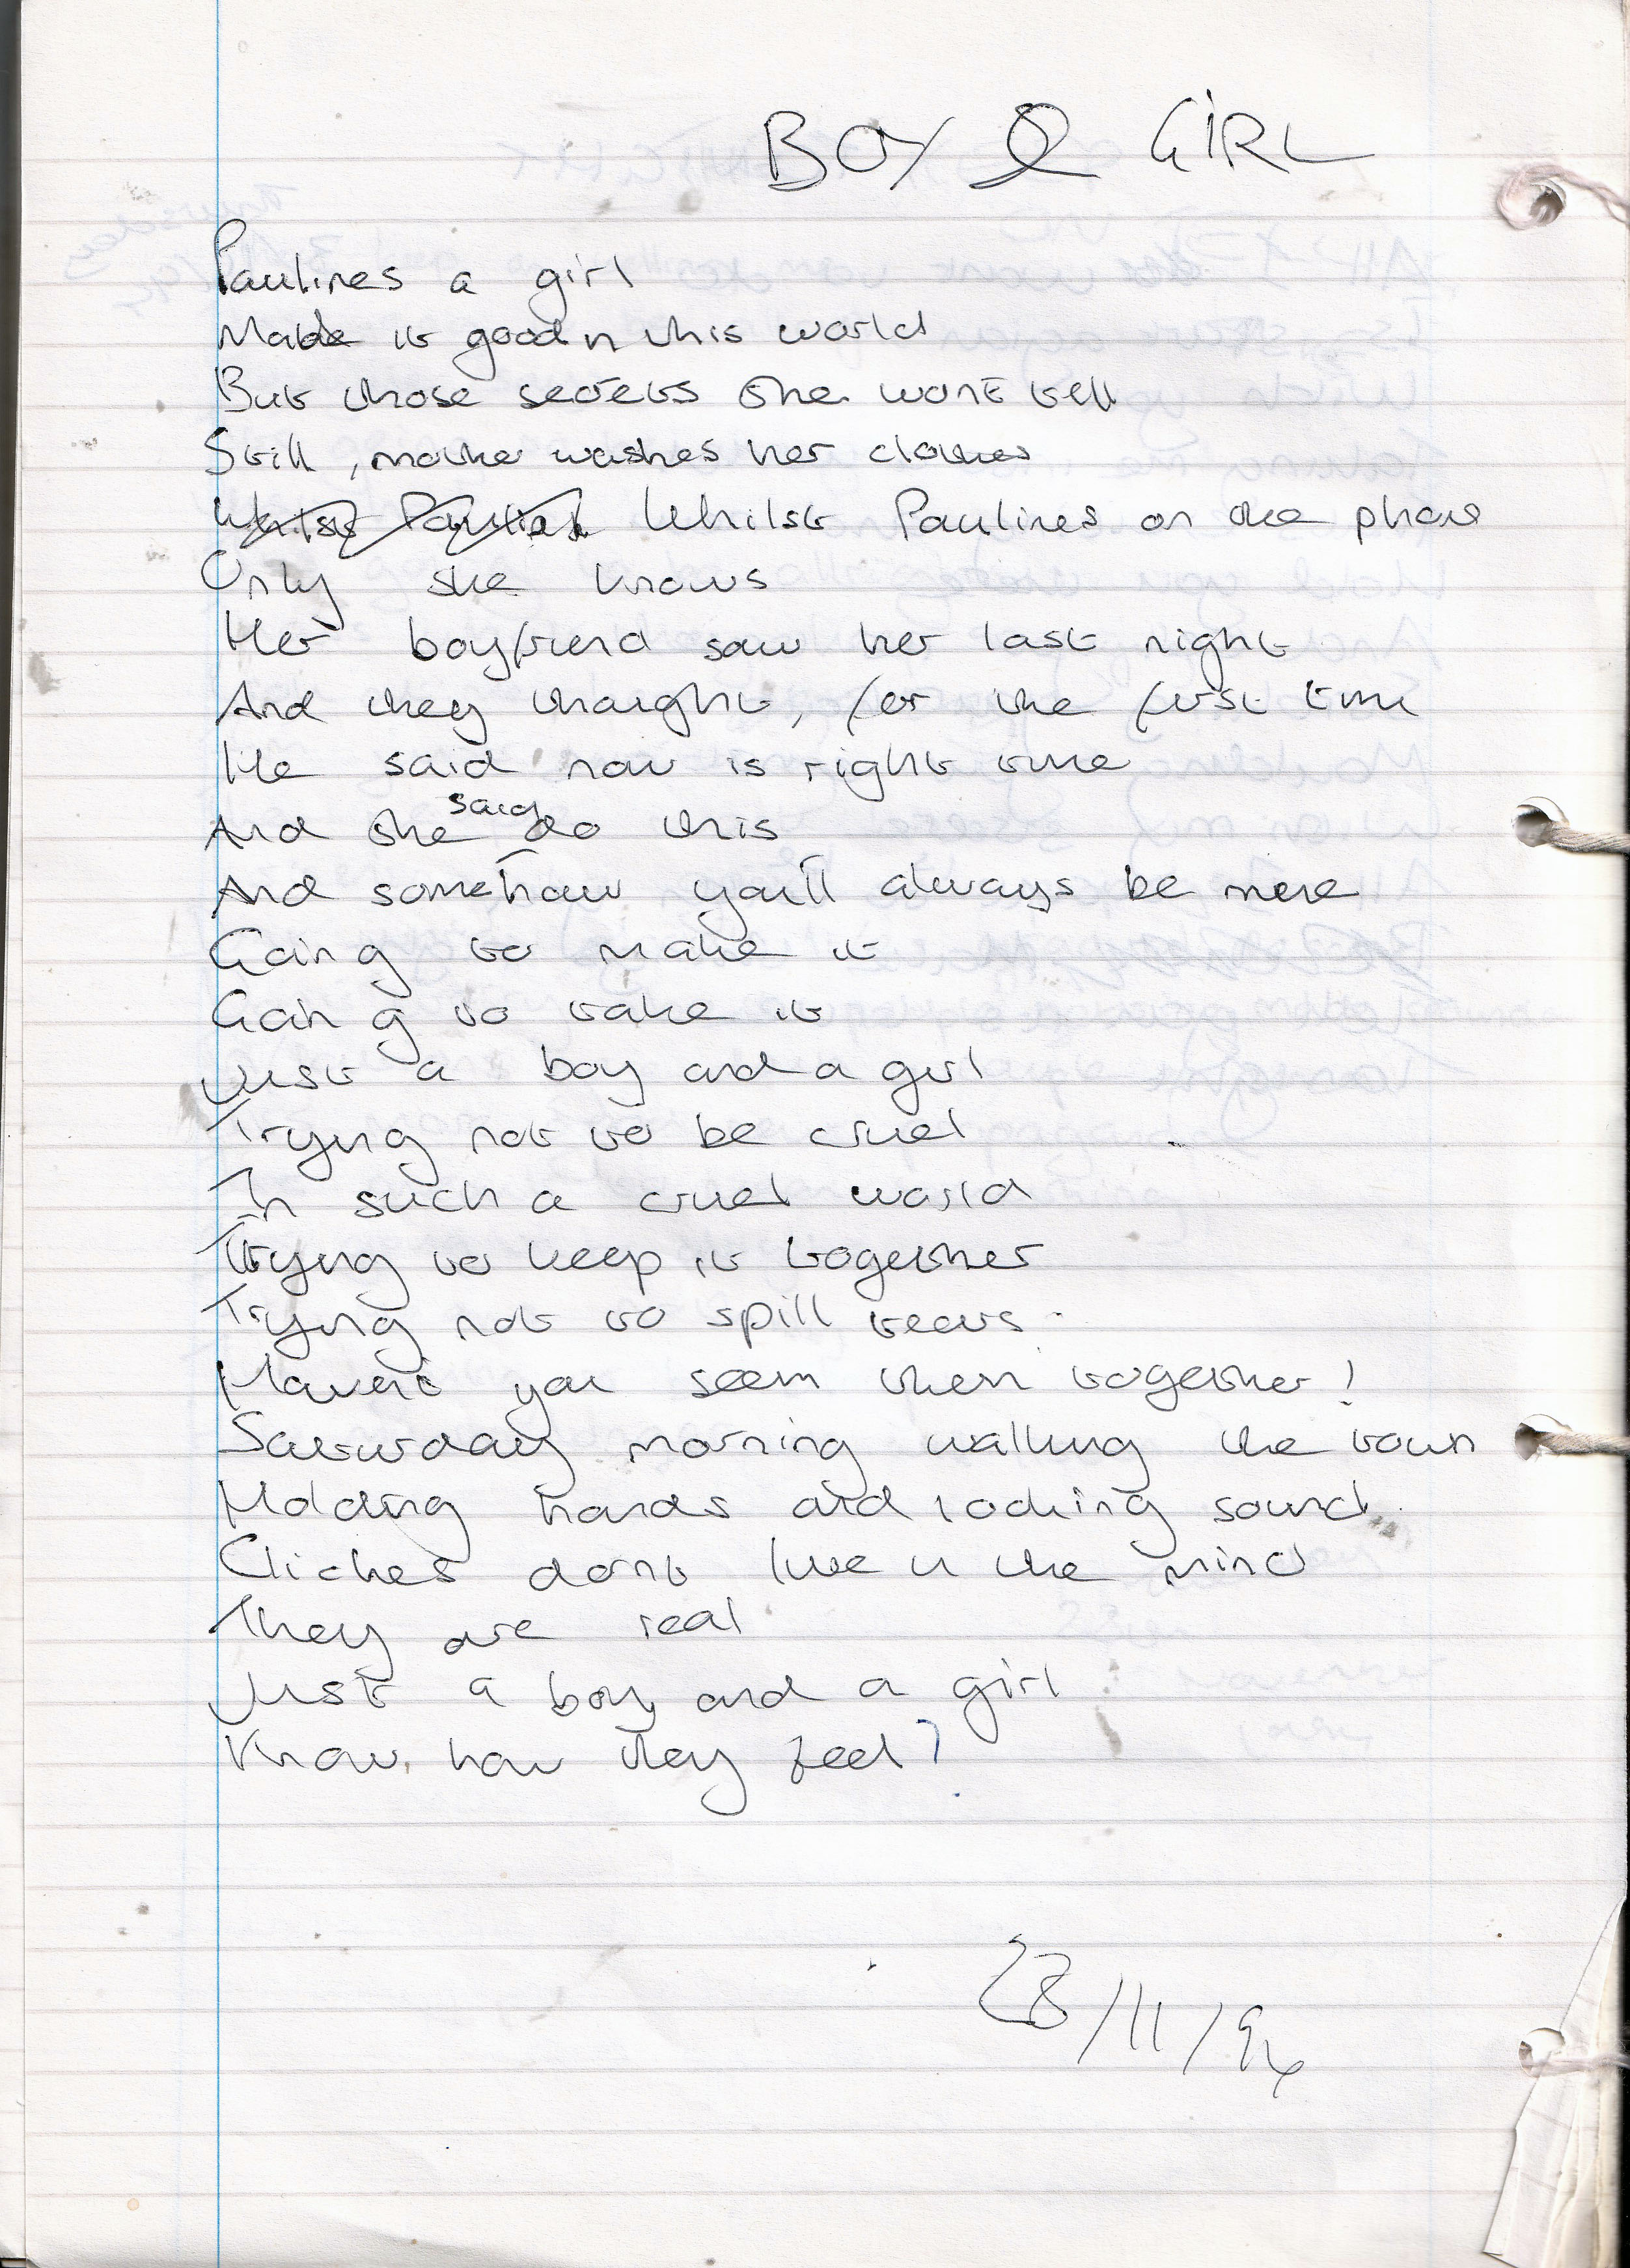 BOY & GIRL
Paulines a girl
Made it good n this world
But those secrets she wont tell
Still, mother washes her clothes
Whilst Paulines on the phone
Only she knows
Her boyfriend saw her last night
And they thought, for the first time
He said now is right time
And she said do this
And somehow you'll always be mine
Going to make it
Going to take it
Just a boy and a girl
Trying not to be cruel
In such a cruel world
Trying to keep it together
Trying not to spill tears.
Havent you seem them together!
Saturday morning walking the town
Holding hands and looking sound.
Cliches dont live n the mind
They are real
Just a boy and a girl
Know how they feel?
23/11/94